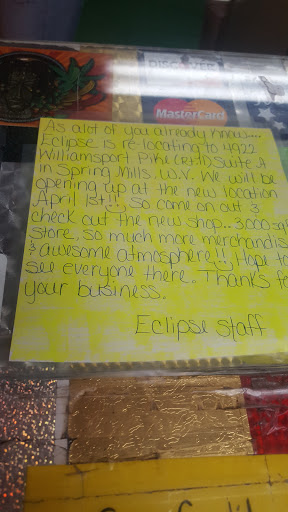 DISCOVER
MasterCard
As alot of you already know...
Eclipse is re-locating to 4922
Williamsport Pike (rt 11) Suite A
in Spring Mills, W.V. We will be
opening up at the new location
April 1st!!, So come on out &
check out the new shop.. 3,000 sq
store, so much more merchandis
& awesome atmosphere!! Hope to
see everyone there. Thanks fo
your business.
Eclipse staff